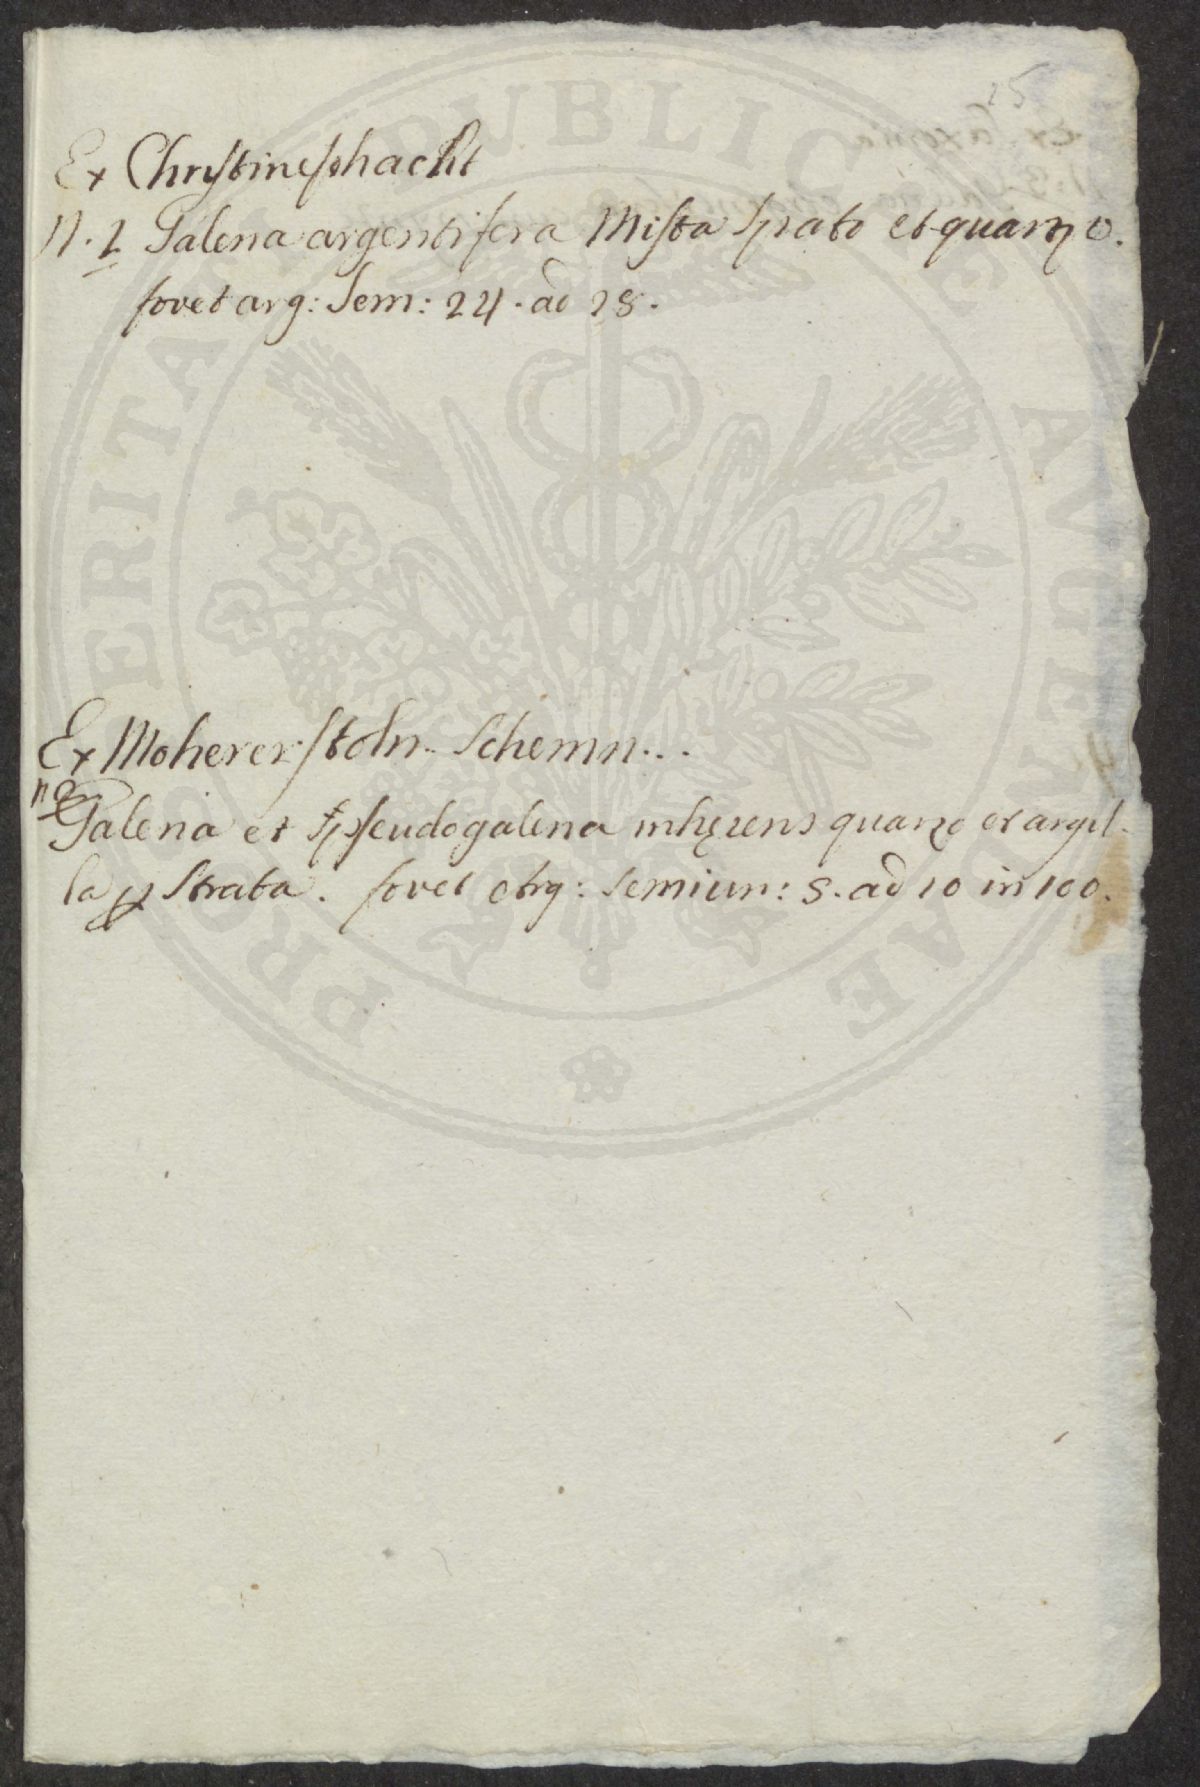 25
Ex Christineschacht
N. 1 Galena argentifera Mista Spato et quarzo.
fovet arg: Sem: 24. ad 28.
Ex Moherer stoln. Schemn...
n 2
Galena et pseudogalena inhęrens quarzo et argil-
la strata. fovet arg: Semiun: 8. ad 10 in 100.
PROSPERITATI PUBLICAE AUGENDAE